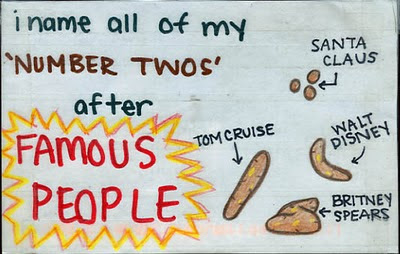 i name all of my
'NUMBER TWOS'
after
FAMOUS
PEOPLE
SANTA
CLAUS
TOM CRUISE
WALT
DISNEY
BRITNEY
SPEARS